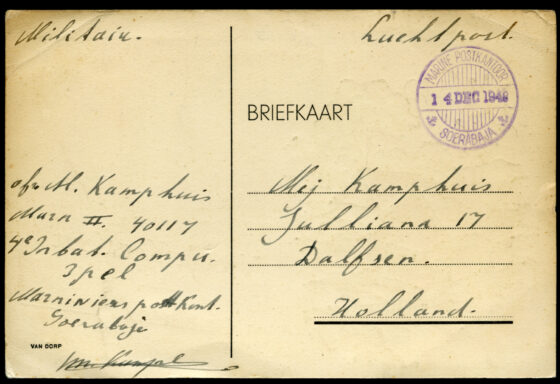 Militair.
Luchtpost.
MARINE POSTKANTOOR
14 DEC 1946
SOERABAJA
BRIEFKAART
Kamphuis
Marn II. 40117
4e Inbat. Compu.
3pel
Marniniers postKant.
Soerabaje
Mej Kamphuis
Julliana 17
Dalfsen.
Holland.
VAN DORP